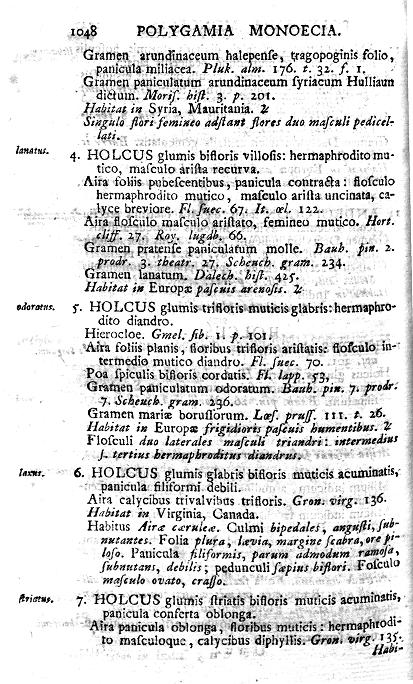 1048 POLYGAMIA MONOECIA.
Gramen arundinaceum halepenſe, tragopoginis folio,
panicula miliacea. Pluk. alm. 176. t. 32. f. 1.
Gramen paniculatum arundinaceum ſyriacum Hulliaun
dictum. Moriſ. hiſt. 3. p. 201.
Habitat in Syria, Mauritania. ♃
Singulo flori femineo adſtant flores duo maſculi pedicel-
lati.
lanatus. 4. HOLCUS glumis bifloris villoſis: hermaphrodito mu-
tico, maſculo ariſta recurva.
Aira foliis pubeſcentibus, panicula contracta: floſculo
hermaphrodito mutico, maſculo ariſta uncinata, ca-
lyce breviore. Fl. ſuec. 67. It. œl. 122.
Aira floſculo maſculo ariſtato, femineo mutico. Hort.
cliff. 27. Roy. lugdb. 66.
Gramen pratenſe paniculatum molle. Bauh. pin. 2.
prodr. 3. theatr. 27. Scheuch. gram. 234.
Gramen lanatum. Dalech. hiſt. 425.
Habitat in Europæ paſcuis arenoſis. ♃
odoratus. 5. HOLCUS glumis trifloris muticis glabris: hermaphro-
dito diandro.
Hierocloe. Gmel. ſib. 1. p. 101.
Aira foliis planis, floribus trifloris ariſtatis: floſculo in-
termedio mutico diandro. Fl. ſuec. 70.
Poa ſpiculis bifloris cordatis. Fl. lapp. 53,
Gramen paniculatum odoratum. Bauh. pin. 7. prodr.
7. Scheuch. gram. 236.
Gramen mariæ boruſſorum. Lœſ. pruſſ. 111. t. 26.
Habitat in Europæ frigidioris paſcuis humentibus. ♃
Floſculi duo laterales maſculi triandri: intermedius
ſ. tertius hermaphroditus diandrus.
laxus. 6. HOLCUS glumis glabris bifloris muticis acuminatis,
panicula filiformi debili.
Aira calycibus trivalvibus trifloris. Gron. virg. 136.
Habitat in Virginia, Canada.
Habitus Airæ cæruleæ. Culmi bipedales, anguſti, ſub-
nutantes. Folia plura, lævia, margine ſcabra, ore pi-
loſo. Panicula filiformis, parum admodum ramoſa,
ſubnutans, debilis; pedunculi ſæpius biflori. Foſculo
maſculo ovato, craſſo.
ſtriatus. 7. HOLCUS glumis ſtriatis bifloris muticis acuminatis,
panicula conferta oblonga.
Aira panicula oblonga, floribus muticis: hermaphrodi-
to maſculoque, calycibus diphyllis. Gron. virg. 135.
Habi-